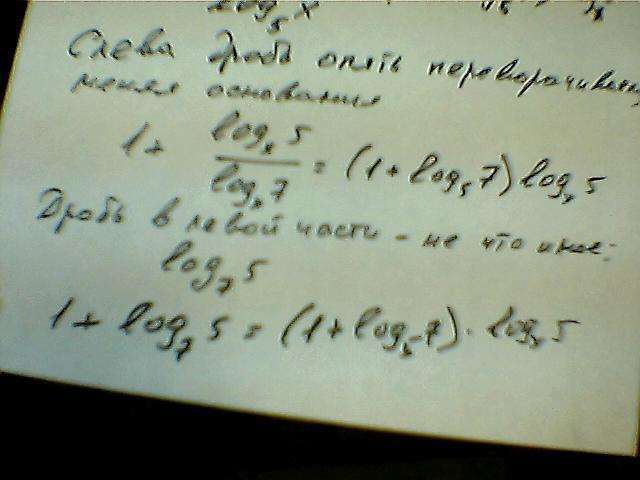 log₅ x
Слева дробь опять переворачиваем,
меняя основания
1 + log_x 5 / log_x 7 = (1 + log₅ 7) log_x 5
Дробь в левой части - не что иное:
log₇ 5
1 + log₇ 5 = (1 + log₅ 7) · log_x 5